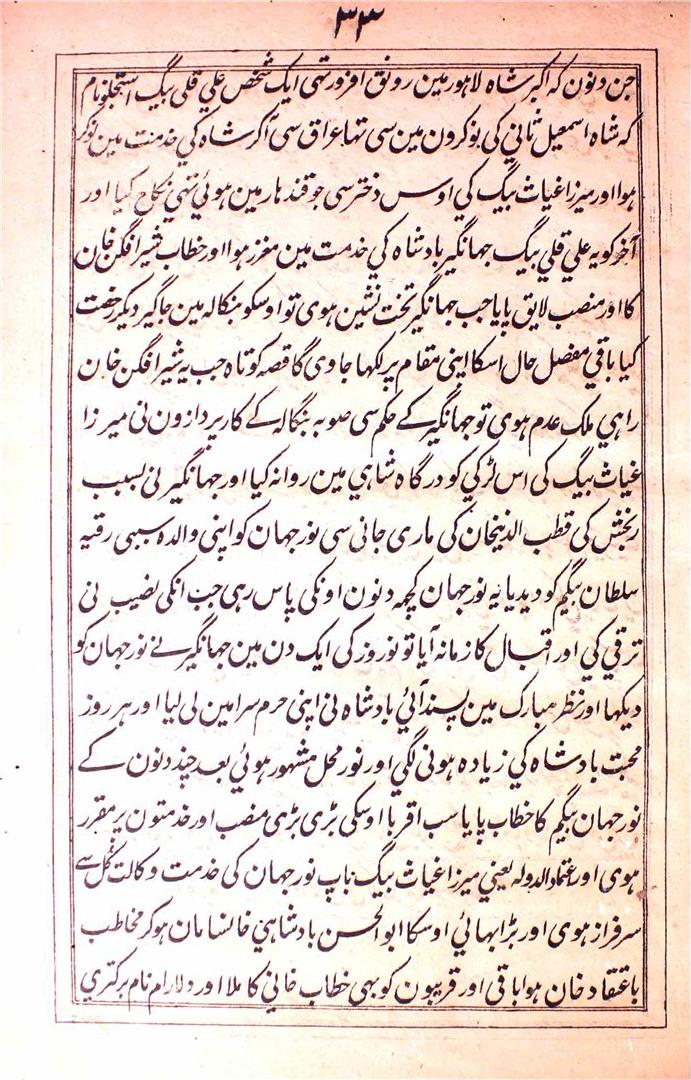 ۳۳
جن دنون کہ اکبر شاہ لاہور مین رونق افزور تہی ایک شخص علي قلي بیگ استجلو نام
کہ شاہ اسمعیل ثاني کي نوکرون مین سی تہا عراق سی آ کر شاہ کي خدمت مین نوکر
ہوا اور میرزا غیاث بیگ کي اوس دختر سی جو قندہار مین ہوئي تہي نکاح کیا اور
آخر کو یہ علي قلي بیگ جہانگیر بادشاہ کي خدمت مین معزز ہوا اور خطاب شیر افگن خان
کا اور منصب لایق پایا جب جہانگیر تخت نشین ہوی تو اوسکو بنگالہ مین جاگیر دیکر رخصت
کیا باقي مفصل حال اسکا اپني مقام پر لکہا جاوی گا قصہ کوتاہ جب یہ شیر افگن خان
راہي ملک عدم ہوی تو جہانگیر کے حکم سی صوبہ بنگالہ کے کارپردازون ني میرزا
غیاث بیگ کی اس لڑکي کو درگاہ شاہي مین روانہ کیا اور جہانگیر ني بسبب
رنجش کي قطب الدینخان کي ماری جاني سی نور جہان کو اپني والدہ سببی رقیہ
سلطان بیگم کو دیدیا یہ نور جہان کچہہ دنون اونکي پاس رہی جب انکي نصیب ني
ترقي کي اور اقبال کا زمانہ آیا تو نوروز کي ایک دن مین جہانگیر نے نور جہان کو
دیکہا اور نظر مبارک مین پسند آئي بادشاہ ني اپني حرم سرا مین لی لیا اور ہر روز
محبت بادشاہ کي زیادہ ہوني لگي اور نور محل مشہور ہوئي بعد چند دنون کے
نور جہان بیگم کا خطاب پایا سب اقربا اوسکي بڑي بڑي منصب اور خدمتون پر مقرر
ہوی اور اعتماد الدولہ یعني میرزا غیاث بیگ باپ نور جہان کی خدمت وکالت کل سے
سرفراز ہوی اور بڑا بہائي اوسکا ابو الحسن بادشاہي خانسامان ہو کر مخاطب
باعتقاد خان ہوا باقي اور قریبون کو بہي خطاب خاني کا ملا اور دلارام نام